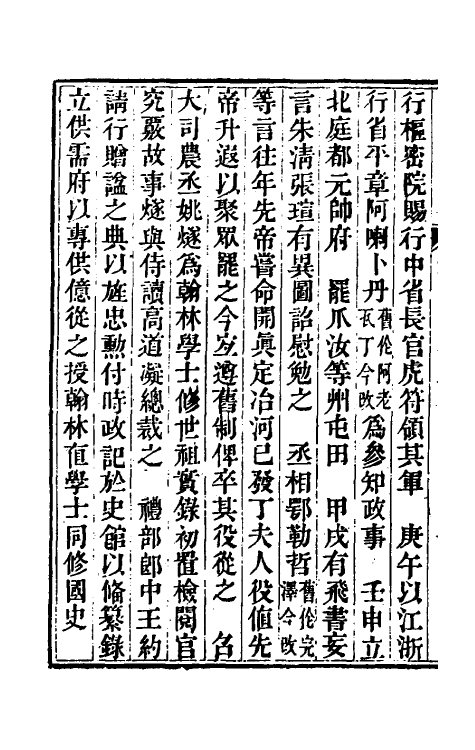 行樞密院賜行中省長官虎符領其軍　庚午以江浙
行省平章阿喇卜丹舊倫阿老瓦丁今改爲參知政事　壬申立
北庭都元帥府　罷爪汝等州屯田　甲戌有飛書妄
言朱清張瑄有異圖詔慰勉之　丞相鄂勒哲舊倫完澤今改
等言往年先帝嘗命開眞定冶河已發丁夫人役值先
帝升遐以聚眾罷之今宜遵舊制俾卒其役從之　召
大司農丞姚燧爲翰林學士修世祖實錄初置檢閱官
究覈故事燧與侍讀高道凝總裁之　禮部郎中王約
請行贈諡之典以旌忠勳付時政記於史館以備纂錄
立供需府以專供億從之授翰林直學士同修國史